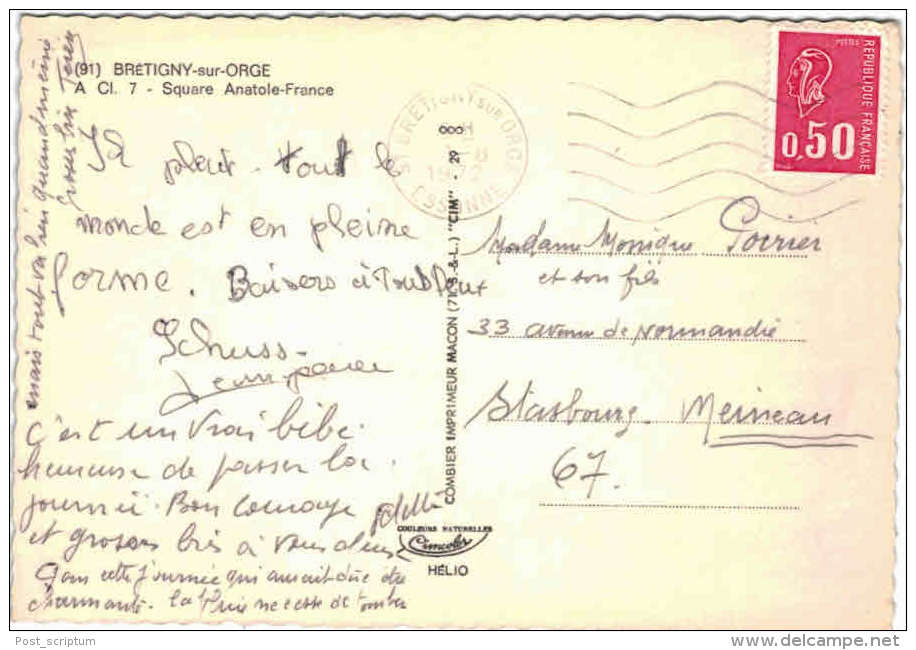 (91) BRÉTIGNY-sur-ORGE
A Cl. 7 - Square Anatole-France
Il pleut. tout le
monde est en pleine
forme. Baisers à tous deux
C'est un vrai bébé.
heureuse de passer la
journée. Bon courage
et grosses bises à vous deux
Dans cette journée qui aurait due être
charmante. la Pluie ne cesse de tomber
mais tout va bien quand même
Grosses bises
BRETIGNY sur ORGE
1972
ESSONNE
COMBIER IMPRIMEUR MACON (71 S.-&-L.) "CIM" - 29
COULEURS NATURELLES
Cimcolor
HÉLIO
POSTES
REPUBLIQUE FRANÇAISE
0,50
Madame Monique Poirier
et son fils
33 avenue de Normandie
Stasbourg - Meineau
67.
Post_scriptum
delcampe.net